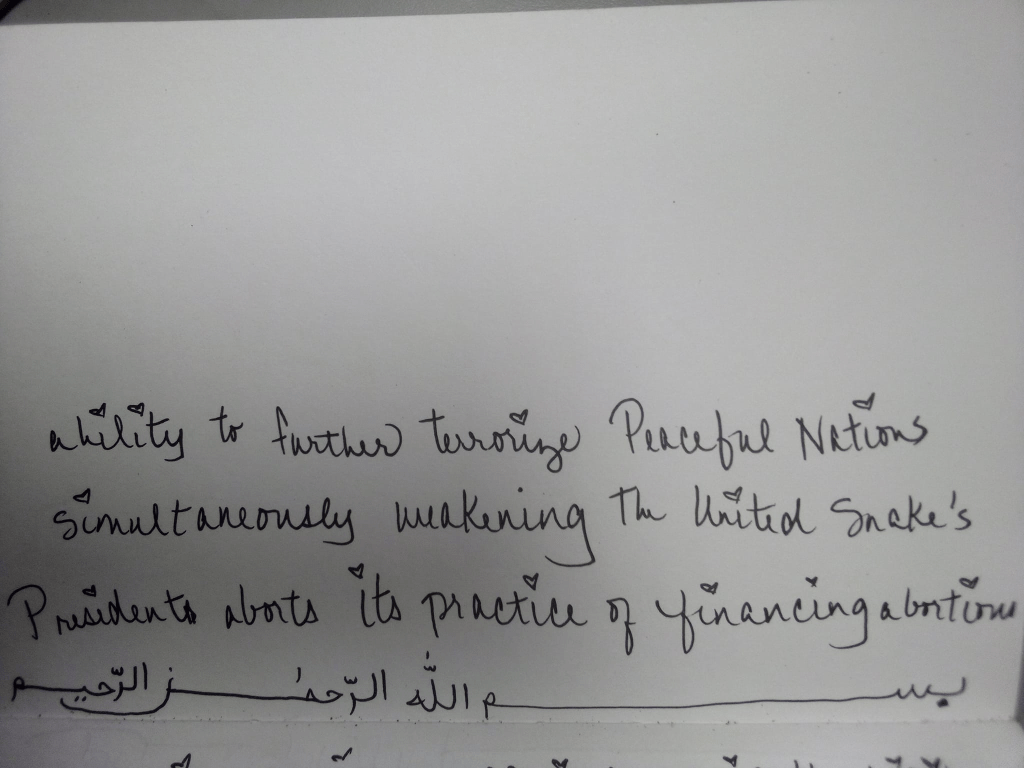 ability to further terrorize Peaceful Nations
simultaneously weakening The United Snake's
Presidents aborts its practice of financing abortions
بسم اللّٰه الرّحمٰن الرّحيم